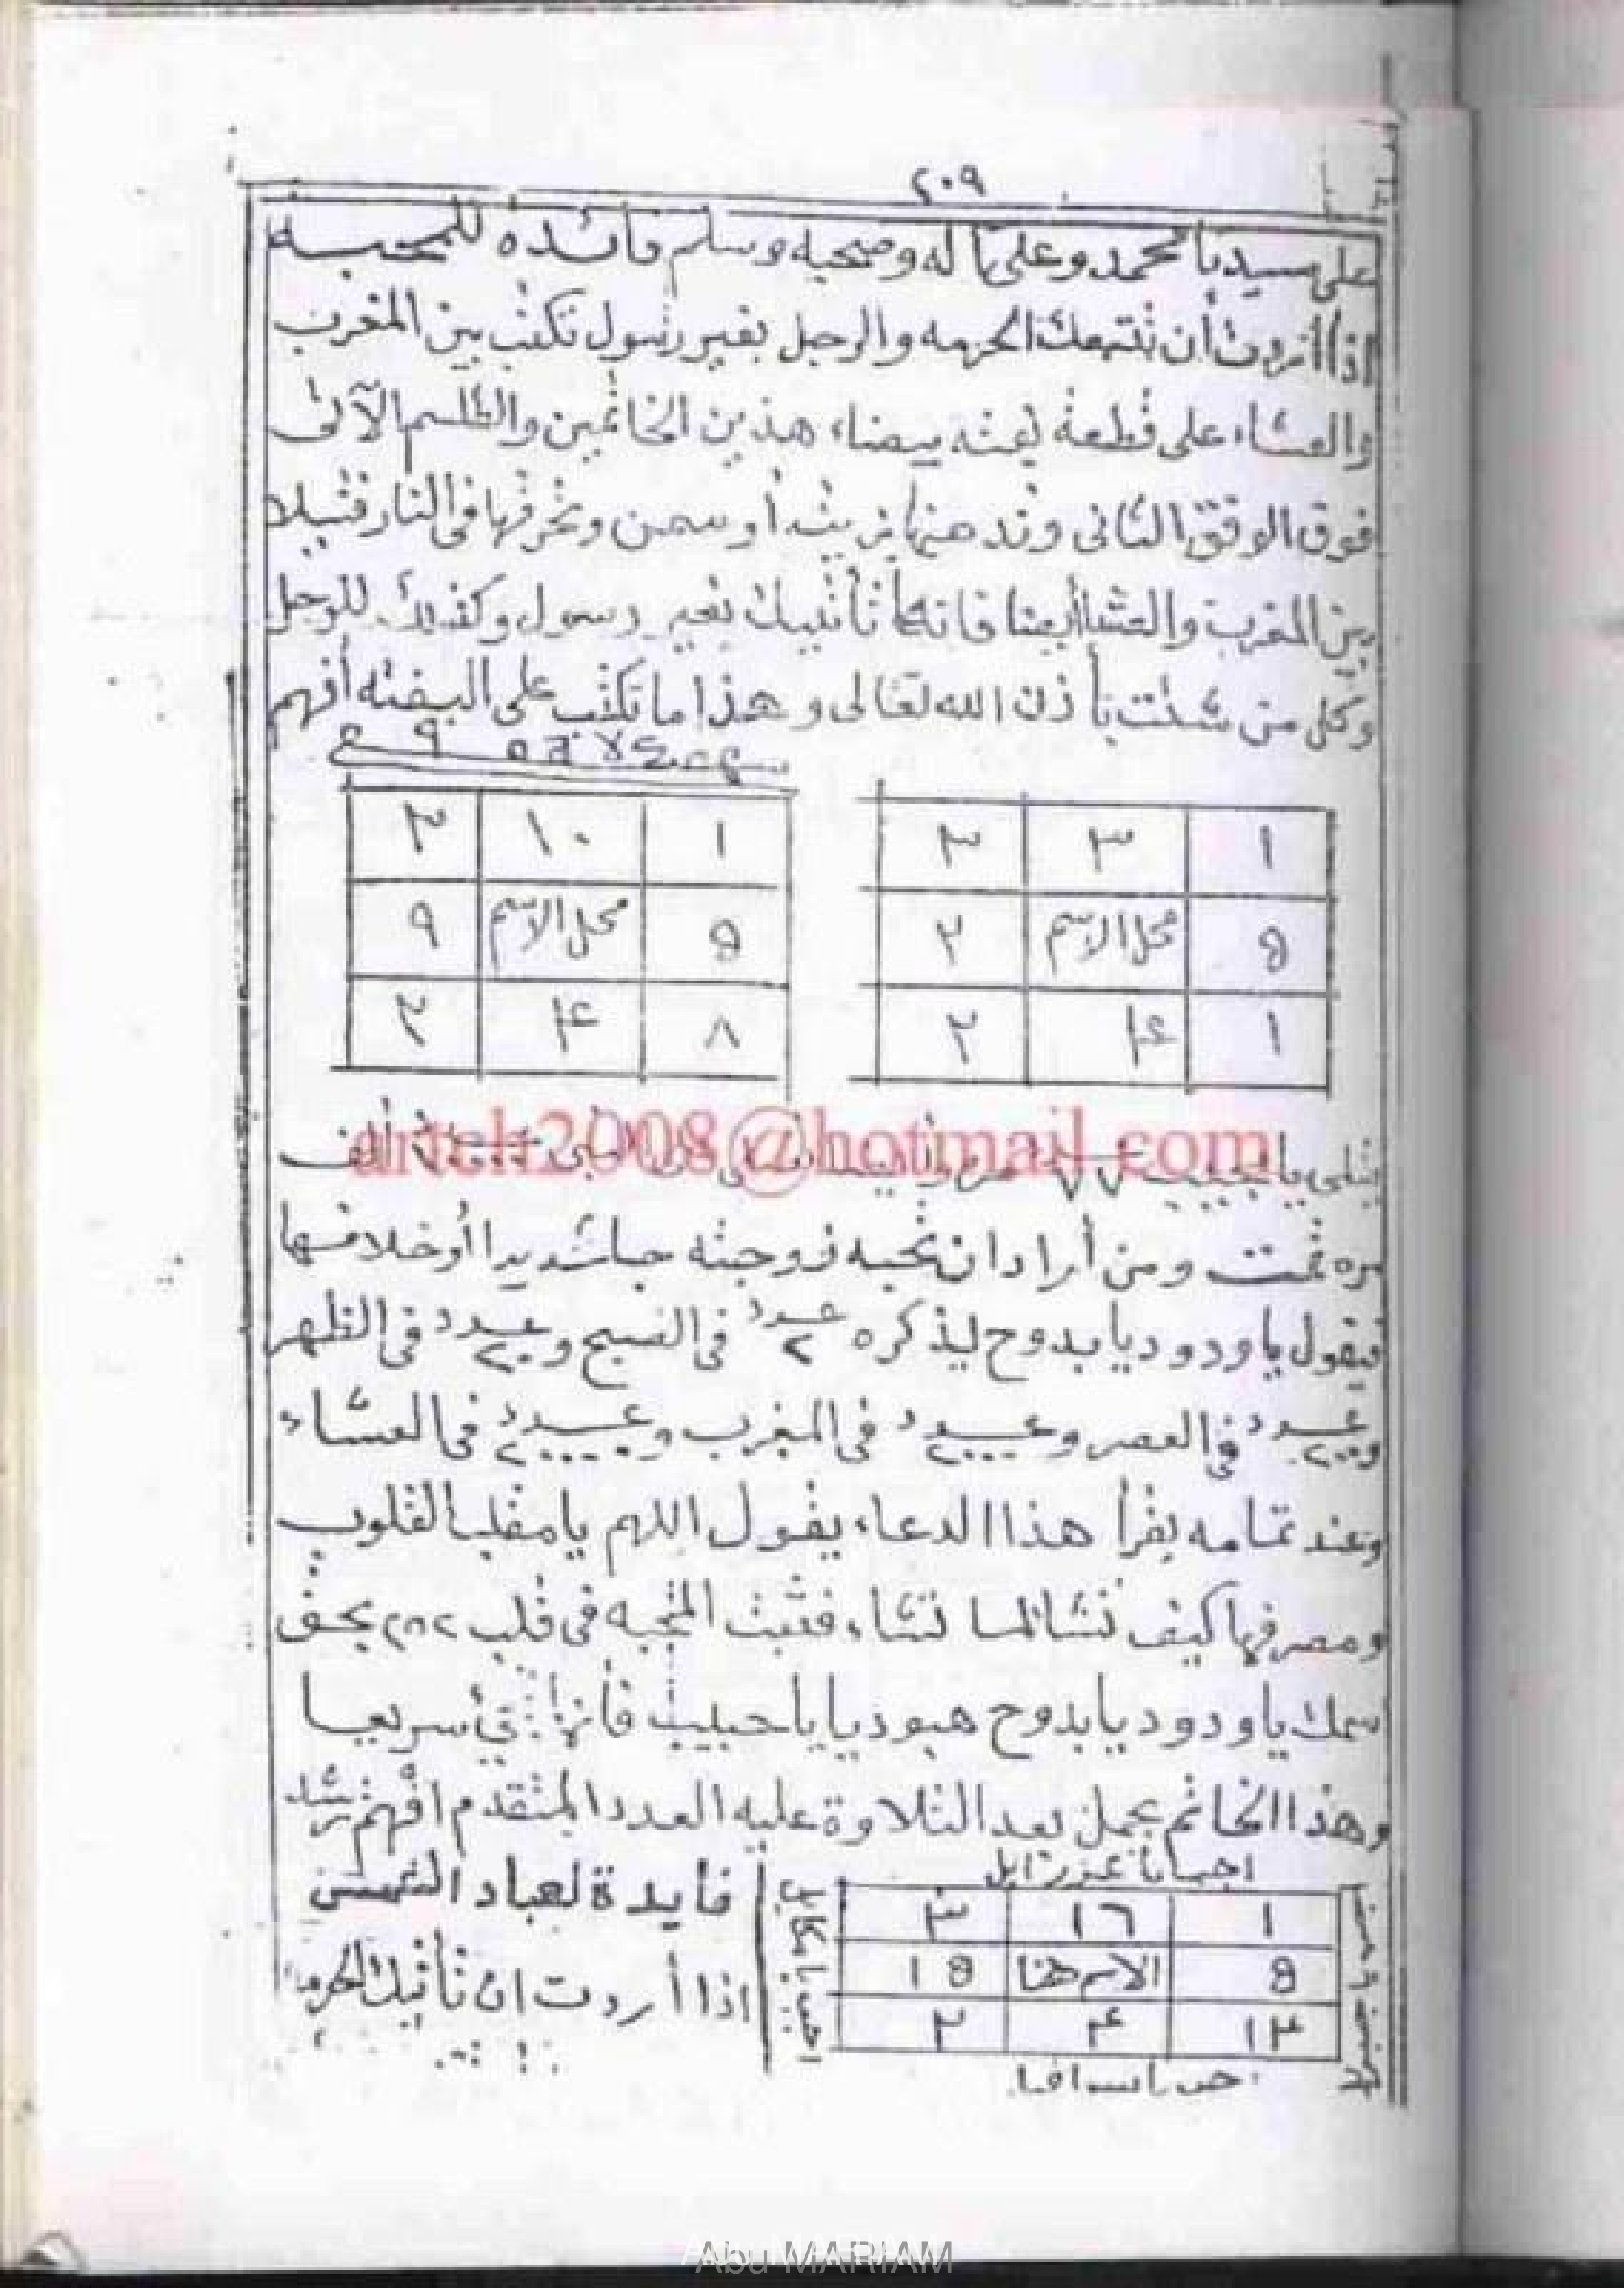 ٢٠٩
على سيدنا محمد وعلى آله وصحبه وسلم فائدة للمحبه
إذا أردت أن تتبعك الحرمه والرجل بغير رسول تكتب بين المغرب
والعشاء على قطعة بيضاء هذين الخاتمين والطلسم الآتى
فوق الوفق الثانى وتدهنها زيت أو سمن وتحرقها فى النار فتيلا
بين المغرب والعشا أيضا فانها تأتيك بغير رسول وكذلك للرجل
وكل من شئت بأذن الله تعالى وهذا ما تكتب على البيضه أفهم
١ ٣ ٣
٥ محل الاسم ٢
١ ٤ ٢
١ ١٠ ٣
٥ محل الاسم ٩
٨ ٤ ٢
arteh2008@hotmail.com
تتلى يا ألف
مره تمت ومن أراد ان تحبه زوجته حبا شديدا أو خلافها
فيقول يا ودود يا بدوح ليذكره عدد ٢ فى الصبح وعدد ٢٠ فى الظهر
وعدد ٢٠٠ فى العصر وعدد ٢٠٠٠ فى المغرب وعدد فى العشاء
وعند تمامه يقرأ هذا الدعاء يقول اللهم يا مقلب القلوب
ومصرفها كيف تشا لما تشاء فتثبت المحبه فى قلب ٢٨٢ بحق
سمك يا ودود يا بدوح يا حبيب فأنها تأتى سريعا
وهذا الخاتم يحمل بعد التلاوة عليه العدد المتقدم افهم ترشد
اجب يا عزرائيل
١ ١٦ ٣
٥ الاسم هنا ١٥
١٣ ٤ ٢
اجب يا ميكائيل
فايدة لعباد الشمس
اذا أردت ان تأتيك الحرمه
Abu MARIAM